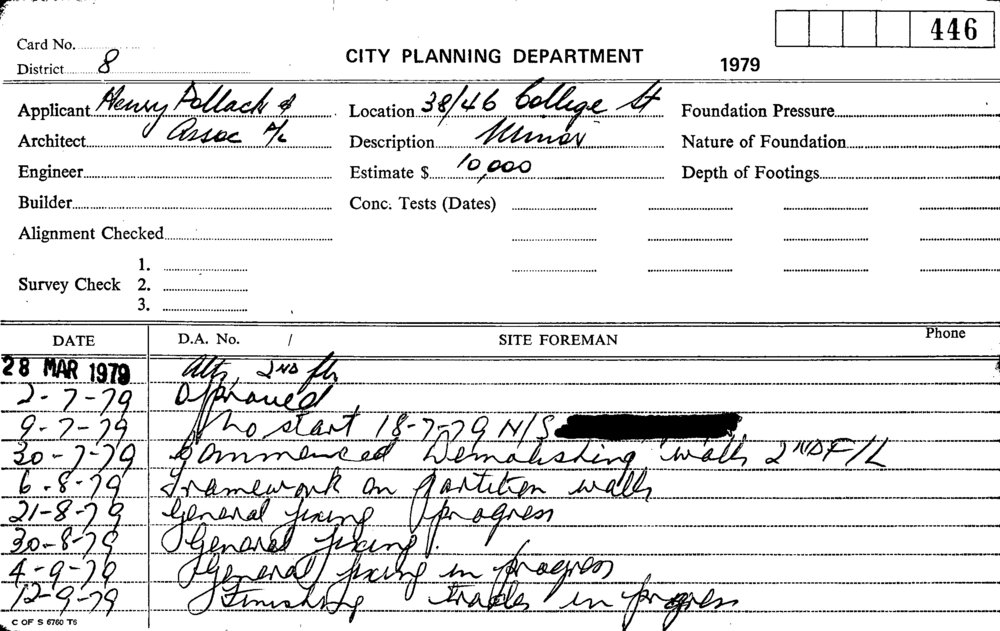 446
Card No.
CITY PLANNING DEPARTMENT
District 8
1979
Applicant Henry Pollack &
Location 38/46 College St
Foundation Pressure
Architect Assoc P/L
Description Minor
Nature of Foundation
Engineer
Estimate $ 10,000
Depth of Footings
Builder
Conc. Tests (Dates)
Alignment Checked
1.
Survey Check 2.
3.
DATE D.A. No. / SITE FOREMAN Phone
28 MAR 1979 Alts, 2ND flr
2-7-79 Approved
9-7-79 No start 18-7-79 N/S
30-7-79 Commenced Demolishing walls 2ND F/L
6-8-79 Framework on partition walls
21-8-79 General fixing progress
30-8-79 General fixing.
4-9-79 General fixing in progress
12-9-79 Finishing trades in progress
C OF S 6760 T6